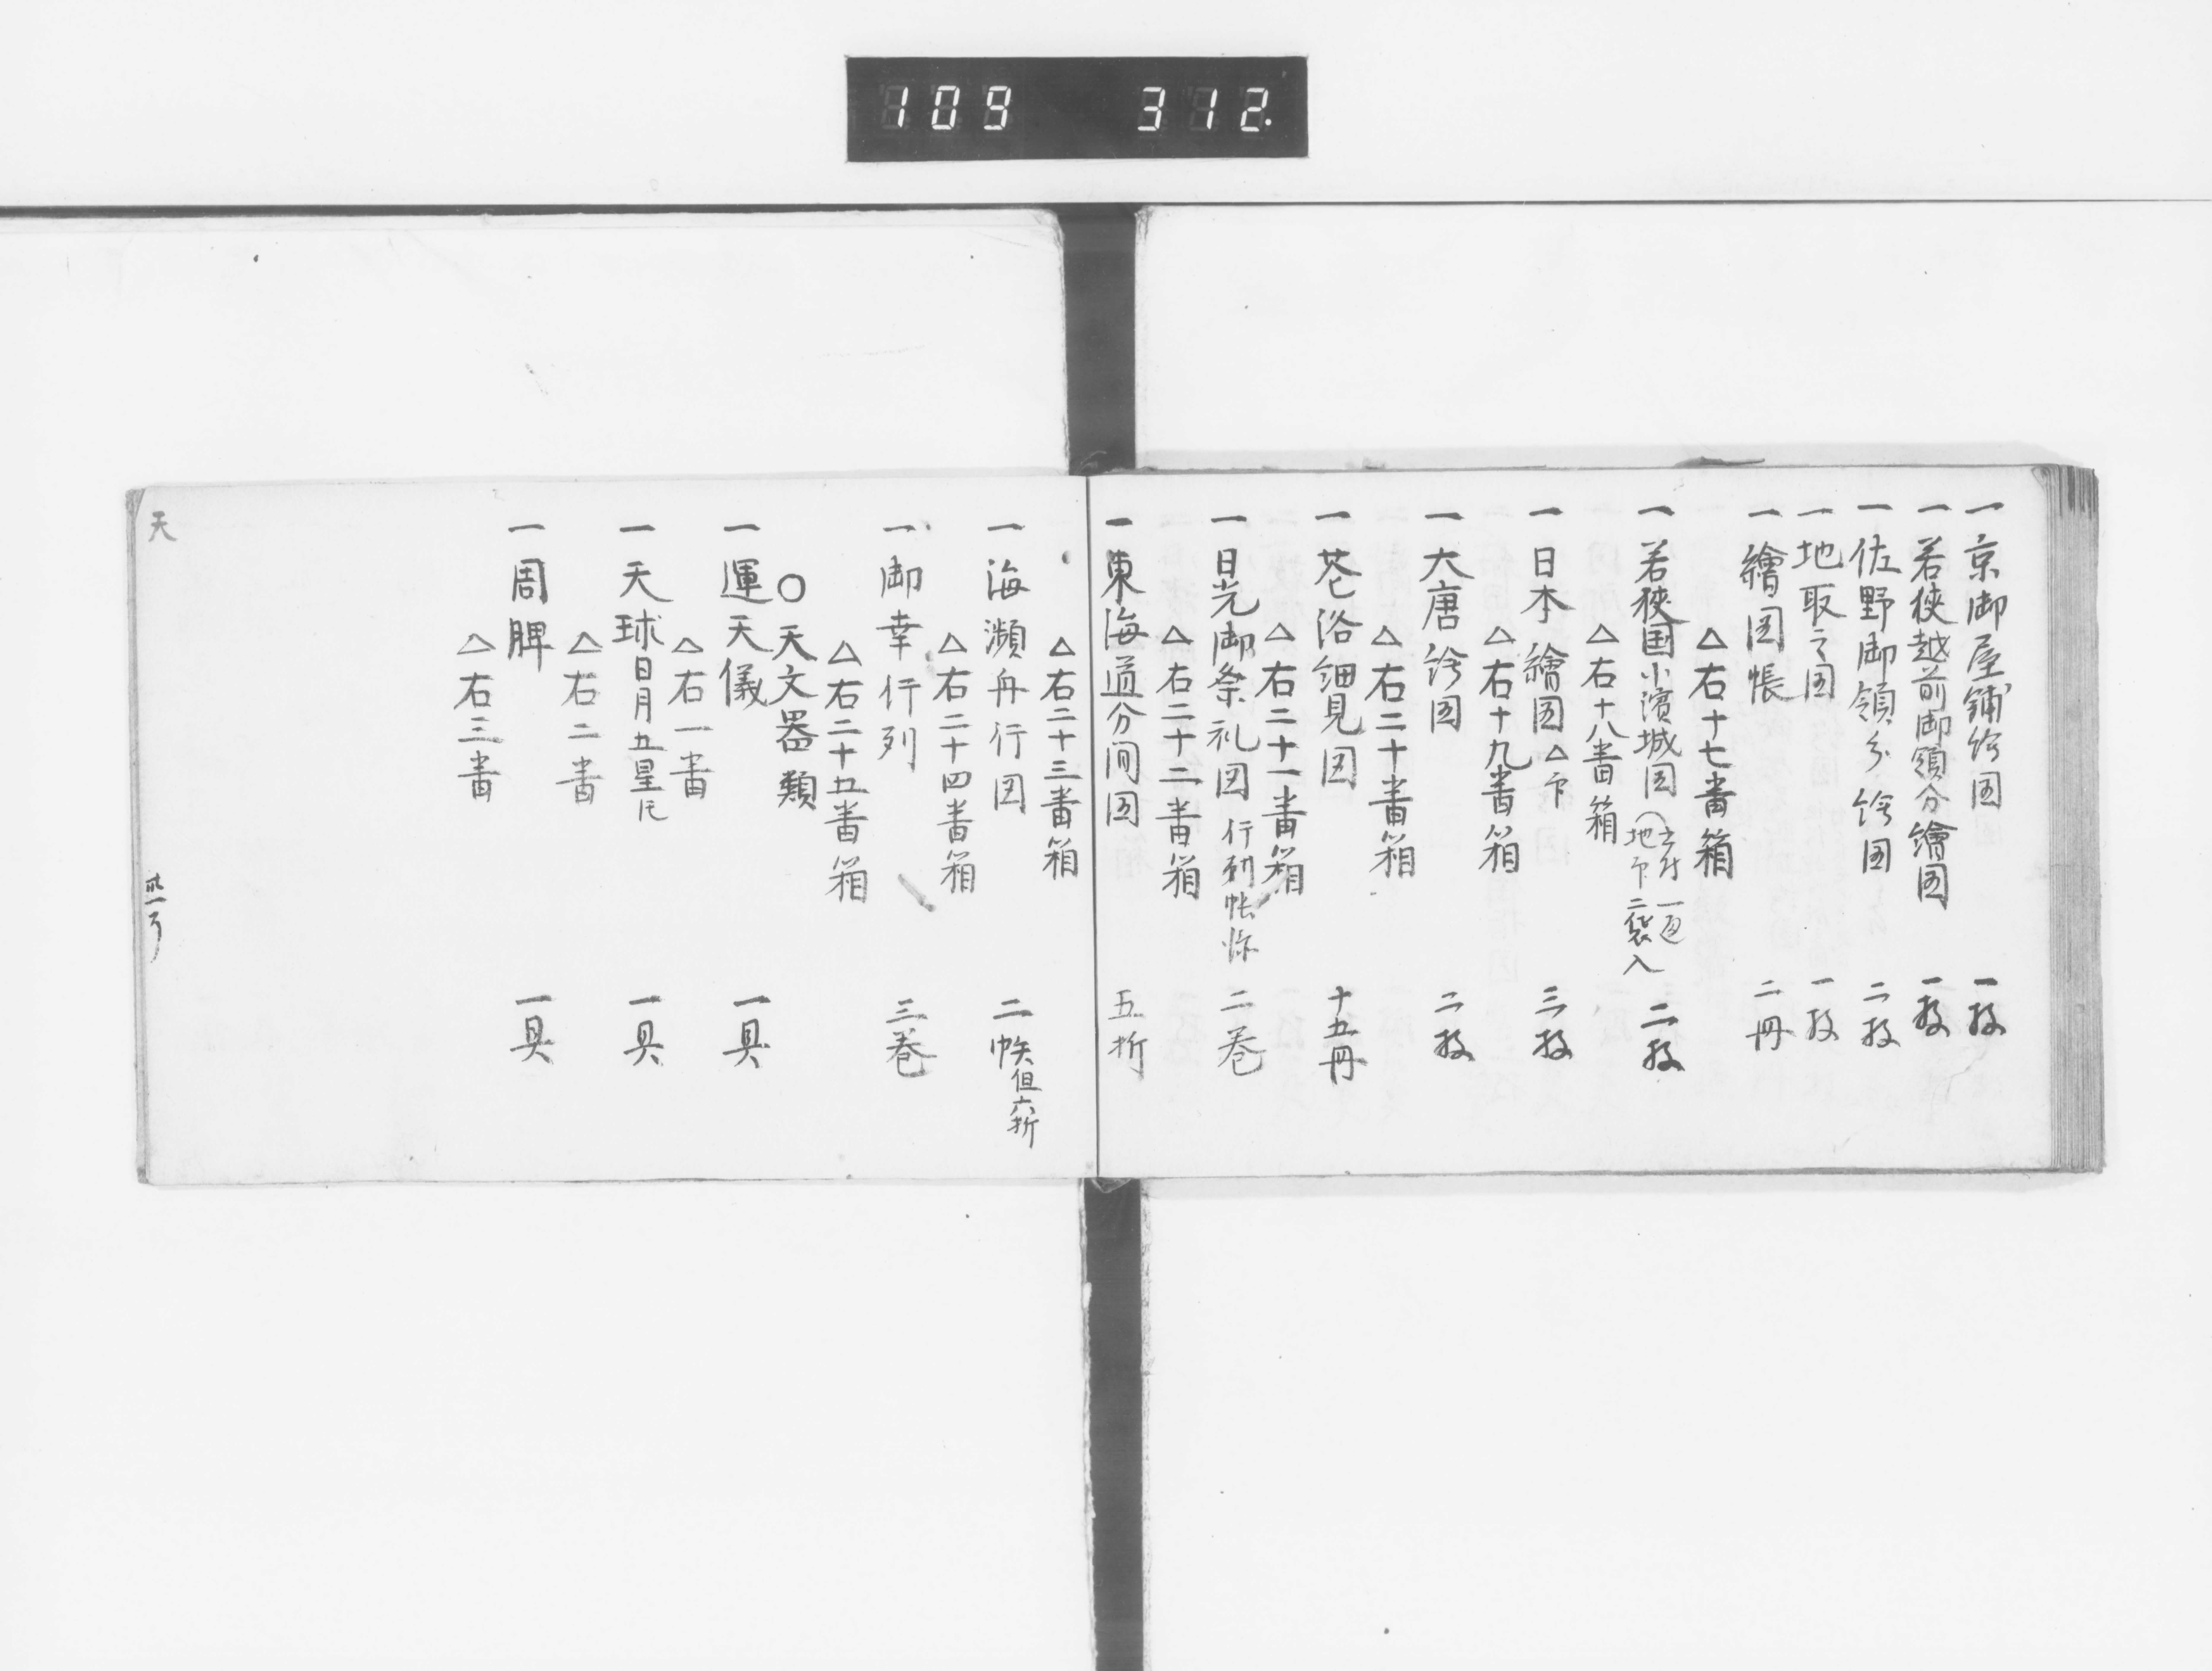 109 312.
一京御屋鋪絵図 一枚
一若狭越前御領分繪図 一枚
一佐野御領分絵図 二枚
一地取之図 一枚
一繪図帳 二冊
△右十七番箱
一若狭国小濱城図 二枚
一通
二袋入
△右十八番箱
一日本繪図 三枚
△右十九番箱
一大唐絵図 二枚
△右二十番箱
一花洛細見図 十五冊
△右二十一番箱
一日光御祭礼図行列帳添 二巻
△右二十二番箱
一東海道分间図 五折
△右二十三番箱
一海瀕舟行図 二帙但六折
△右二十四番箱
一御幸行列 三巻
△右二十五番箱
○天文器類
一運天儀 一具
△右一番
一天球日月五星圧 一具
△右二番
一周脾 一具
△右三番
天